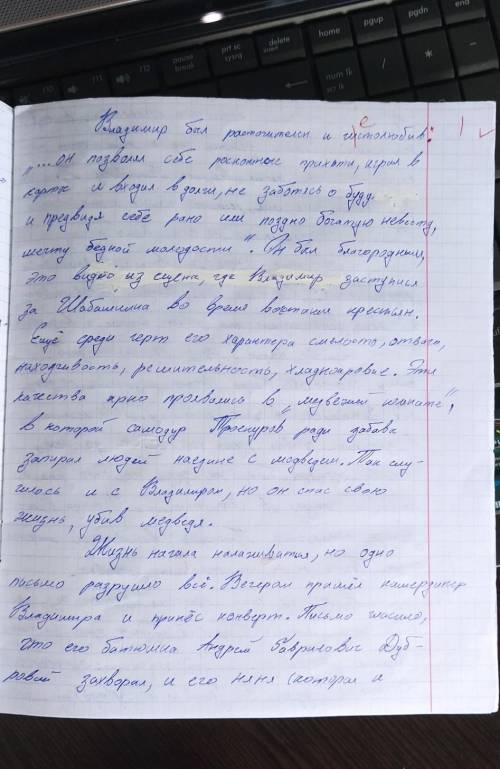 f10
f11
f12
pause
break
prt sc
sysrq
delete
insert
home
pgup
pgdn
end
num lk
/
*
-
Владимир был расточителен и чистолюбив:
е
1 ✓
„...он позволял себе роскошные прихоти, играл в
карты и входил в долги, не заботясь о буду.
и предвидя себе рано или поздно богатую невесту,
мечту бедной молодости". Он был благородным,
это видно из сцены, где Владимир заступился
за Шабашкина во время востания крестьян.
Ещё среди черт его характера смелость, отвага,
находчивость, решительность, хладнокровие. Эти
качества ярко проявились в „медвежей комнате",
в которой самодур Троекуров ради забавы
запирал людей наедине с медведем. Так слу-
чилось и с Владимиром, но он спас свою
жизнь, убив медведя.
Жизнь начала налаживаться, но одно
письмо разрушило всё. Вечером пришёл камердинер
Владимира и принёс конверт. Письмо гласило,
что его батюшка Андрей Гаврилович Дуб-
ровский захворал, и его няня (которая и